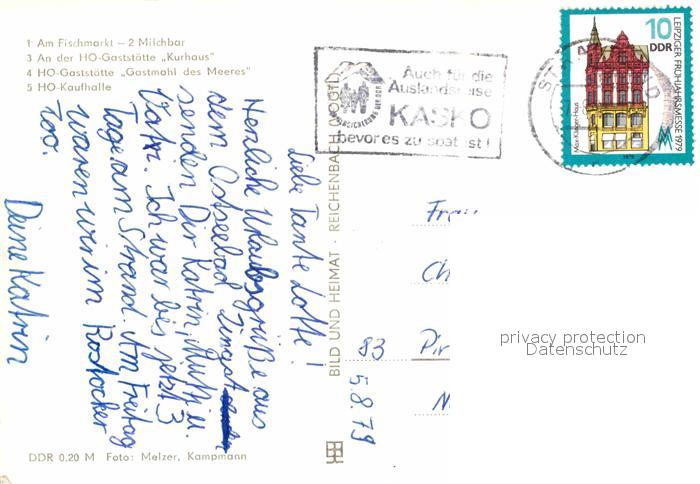 1 Am Fischmarkt — 2 Milchbar
3 An der HO-Gaststätte „Kurhaus"
4 HO-Gaststätte „Gastmahl des Meeres"
5 HO-Kaufhalle
Liebe Tante Lotte!
Herzliche Urlaubsgrüße aus
dem Ostseebad Zingst
senden Dir Katrin, Mutti u.
Vati. Ich war bis jetzt 3
Tage am Strand. Am Freitag
waren wir im Rostocker
Zoo.
Deine Katrin
DDR 0,20 M Foto: Melzer, Kampmann
BILD UND HEIMAT · REICHENBACH
Auch für die
Auslandsreise
KASKO
bevor es zu spät ist!
10
DDR
LEIPZIGER FRÜHJAHRSMESSE 1979
Max-Klinger-Haus
1979
Frau
Ch
83 Pir
5.8.79
privacy protection
Datenschutz